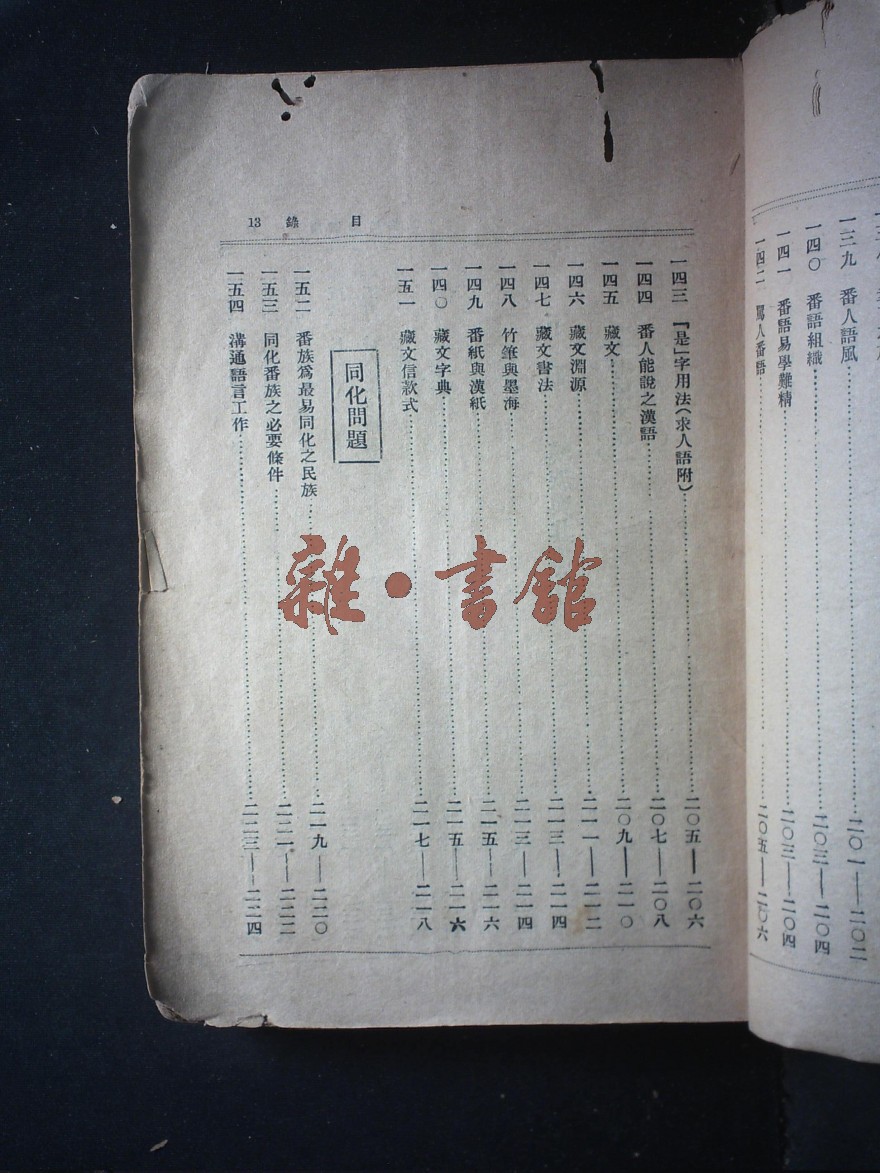 一三九 番人語風……二〇一——二〇二
一四〇 番語組織……二〇三——二〇四
一四一 番語易學難精……二〇三——二〇四
一四二 罵人番語……二〇五——二〇六
目錄 13
一四三 『是』字用法(求人語附)……二〇五——二〇六
一四四 番人能說之漢語……二〇七——二〇八
一四五 藏文……二〇九——二一〇
一四六 藏文淵源……二一一——二一二
一四七 藏文書法……二一三——二一四
一四八 竹筆與墨海……二一三——二一四
一四九 番紙與漢紙……二一五——二一六
一四〇 藏文字典……二一五——二一六
一五一 藏文信款式……二一七——二一八
同化問題
一五二 番族爲最易同化之民族……二一九——二二〇
一五三 同化番族之必要條件……二二一——二二二
一五四 溝通語言工作……二二三——二二四
雜·書館